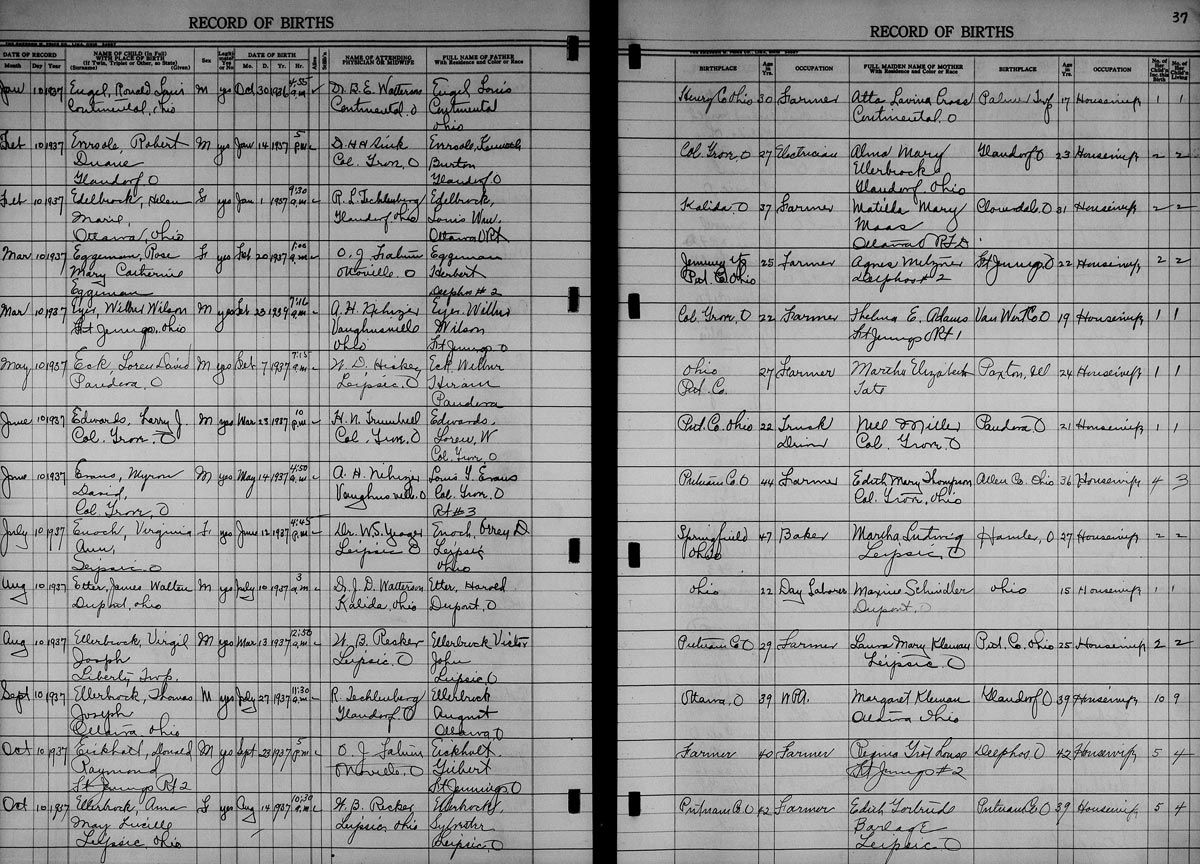 RECORD OF BIRTHS
DATE OF RECORD
Month Day Year
NAME OF CHILD (In Full)
WITH PLACE OF BIRTH
(If Twin, Triplet or Other, so State)
(Surname) (Given)
Sex
Legitimate?
Yes or No
DATE OF BIRTH
Mo. D. Yr. Hr.
Alive
NAME OF ATTENDING
PHYSICIAN OR MIDWIFE
FULL NAME OF FATHER
With Residence and Color or Race
Jan 10 1937 Engel, Ronald Louis M yes Oct 30 1936 4:35 Dr. Engel Louis
Continental, Ohio Continental. O Continental
Ohio
Feb 10 1937 Robert M yes Jan 14 1937 5 P.M.
Duane Col. Grov, O Burton
Glandorf, O Glandorf O
Feb 10 1937 Edelbrock, Helen F yes Jan 1 1937 9:30 a.m. R. L. Tecklenberg Edelbrock,
Marie, Glandorf Ohio Louis Wm,
Ottawa, Ohio Ottawa O Rt
Mar 10 1937 Eggeman, Rose F yes Feb 20 1937 O. J. Eggeman
Mary Catherine Ottoville. O Herbert
Eggeman Delphos # 2
Mar 10 1937 Wilbur Wilson M yes 23 7:16 A. H. Wilbur
Ft Jennings, Ohio Vaughnsville Wilson
Ohio Ft Jennings O
May 10 1937 Eck, Loren David M yes Feb 7 1937 7:15 a.m. W. D. Hickey Eck, Wilbur
Pandora, O Leipsic, O Hiram
Pandora
June 10 1937 Edwards, Larry J. M yes Mar 23 1937 10 P.M. H. N. Trumbull Edwards,
Col. Grov, O Col. Grov, O Loren, W
Col. Grov, O
June 10 1937 Evans, Myron M yes May 14 1937 4:50 A. H. Louis T. Evans
David, Vaughnsville, O Col. Grov, O
Col. Grov, O Rt # 3
July 10 1937 Enoch, Virginia F yes June 12 1937 4:45 P.M. Dr. W.S. Yeager Enoch, D.
Ann, Leipsic O Leipsic
Leipsic, O Ohio
Aug 10 1937 Etter, James Walter M yes July 10 1937 3 a.m. Dr. J. D. Watterson Etter, Harold
Dupont, Ohio Kalida, Ohio Dupont, O
Aug 10 1937 Ellerbrock, Virgil M yes Mar 13 1937 12:50 W. B. Recker Ellerbrock Victor
Joseph Leipsic, O John
Liberty Twp. Leipsic, O
Sept 10 1937 Ellerbrock, Thomas M yes July 27 1937 11:30 R. Tecklenberg Ellerbrock
Joseph Glandorf O August
Ottawa, Ohio Ottawa, O
Oct 10 1937 Eickholt, Donald M yes Sept 23 1937 5 O. J. Eickholt
Raymond Ottoville, O Gilbert
Ft Jennings Rt 2 Ft Jennings, O
Oct 10 1937 Ellerbrock, Anna F yes Aug 14 1937 10:30 W. B. Recker Ellerbrock,
May Lucille Leipsic, Ohio Sylvester
Leipsic, Ohio Leipsic, O
37
RECORD OF BIRTHS
BIRTHPLACE
Age in Yrs.
OCCUPATION
FULL MAIDEN NAME OF MOTHER
With Residence and Color or Race
BIRTHPLACE
Age in Yrs.
OCCUPATION
No. of Her Child'n Inc. this Birth
No. of Her Child'n Living
Henry Co Ohio 30 Farmer Lavina Cross Palmer Twp 17 Housewife 1 1
Continental. O
Col. Grov, O 27 Electrician Alma Mary Glandorf O 23 Housewife 2 2
Ellerbrock
Glandorf, Ohio
Kalida. O 37 Farmer Matilda Mary Cloverdale, O 31 Housewife 2 2
Maas
Ottawa O
Jennings Tp 25 Farmer Agnes Metzner Ft Jennings, O 22 Housewife 2 2
Put. Co Ohio Delphos # 2
Col. Grov, O 22 Farmer Thelma E. Adams Van Wert Co O 19 Housewife 1 1
Ft Jennings O Rt 1
Ohio 27 Farmer Martha Elizabeth Paxton, Ill 24 Housewife 1 1
Put. Co. Tate
Put. Co. Ohio 22 Truck Miller Pandora, O 21 Housewife 1 1
Driver Col. Grov, O
Putnam Co. O 44 Farmer Edith Mary Thompson Allen Co. Ohio 36 Housewife 4 3
Col. Grov, Ohio
Springfield 47 Baker Martha Ludwig Hamler, O 27 Housewife 2 2
Ohio Leipsic, O
Ohio 22 Day Laborer Maxine Schindler Ohio 15 Housewife 1 1
Dupont, O
Putnam Co O 29 Farmer Laura Mary Kleman Put. Co. Ohio 25 Housewife 2 2
Leipsic, O
Ottawa, O 39 WPA. Margaret Kleman Glandorf O 39 Housewife 10 9
Ottawa Ohio
Farmer 40 Farmer Regina Delphos. O 42 Housewife 5 4
Ft Jennings # 2
Putnam Co. O 42 Farmer Edith Gertrude Putnam Co. O 39 Housewife 5 4
Barlage
Leipsic, O